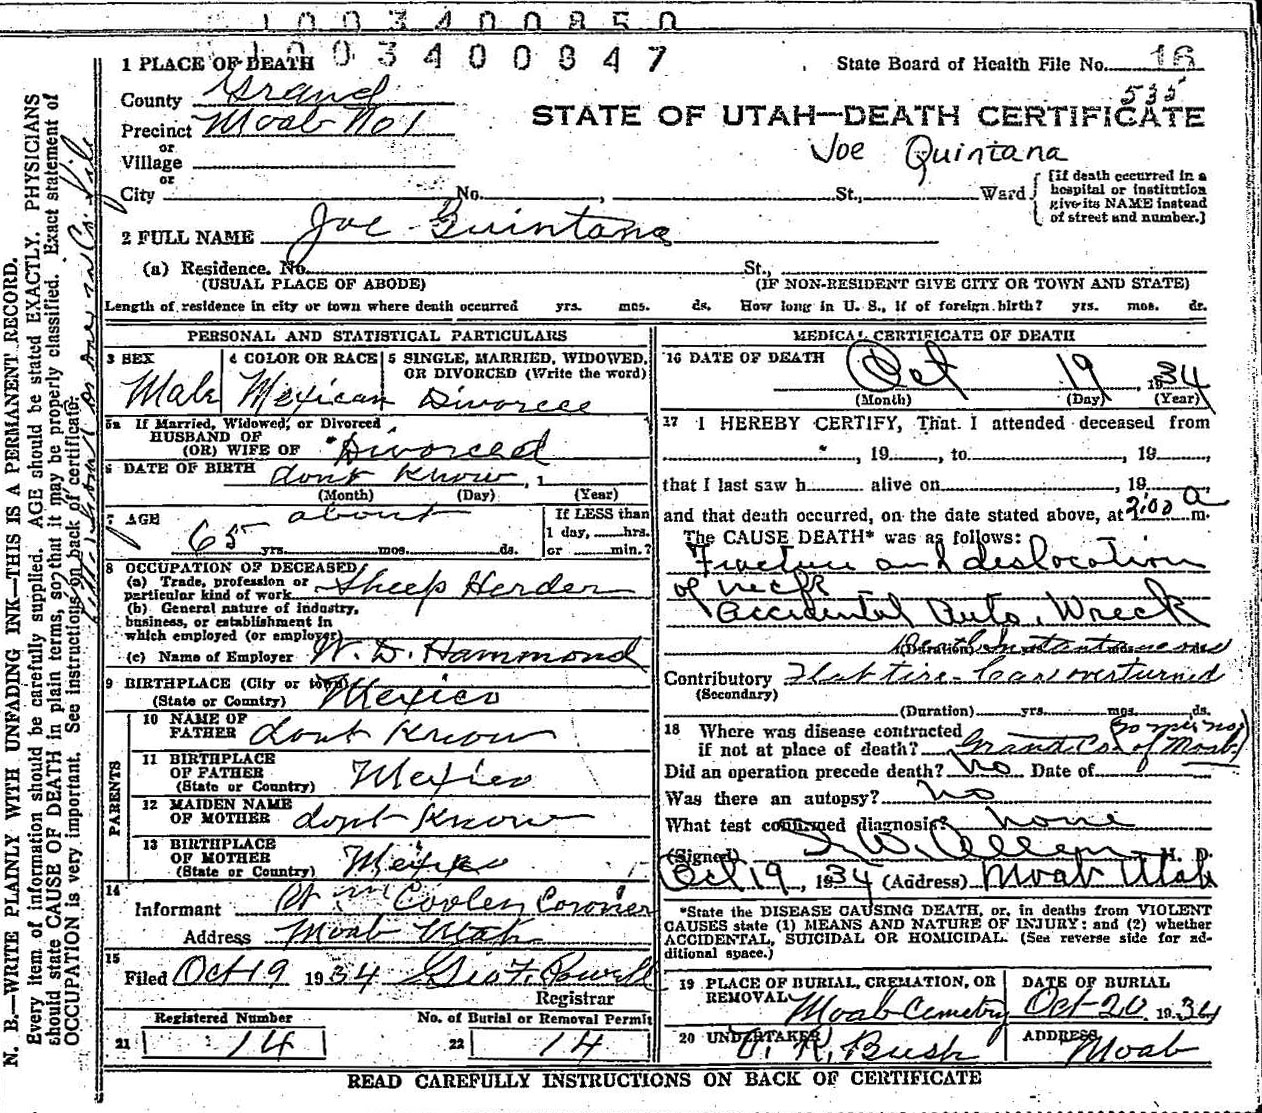 1003400850
1003400847
1 PLACE OF DEATH
State Board of Health File No. 16
County Grand
535
STATE OF UTAH—DEATH CERTIFICATE
Precinct Moab No 1
or
Village
Joe Quintana
or
City No. , St., Ward
[If death occurred in a hospital or institution give its NAME instead of street and number.]
2 FULL NAME Joe Quintana
(a) Residence. No. St.,
(USUAL PLACE OF ABODE) (IF NON-RESIDENT GIVE CITY OR TOWN AND STATE)
Length of residence in city or town where death occurred yrs. mos. ds. How long in U. S., if of foreign birth? yrs. mos. dr.
PERSONAL AND STATISTICAL PARTICULARS
3 SEX
Male
4 COLOR OR RACE
Mexican
5 SINGLE, MARRIED, WIDOWED,
OR DIVORCED (Write the word)
Divorcee
5a If Married, Widowed, or Divorced
HUSBAND OF
(OR) WIFE OF Divorced
6 DATE OF BIRTH dont Know, 1
(Month) (Day) (Year)
7 AGE about
65 yrs. mos. ds.
If LESS than
1 day, hrs.
or min.?
8 OCCUPATION OF DECEASED
(a) Trade, profession or
particular kind of work Sheep Herder
(b) General nature of industry,
business, or establishment in
which employed (or employer)
(c) Name of Employer W. D. Hammond
9 BIRTHPLACE (City or town)
(State or Country) Mexico
PARENTS
10 NAME OF
FATHER dont Know
11 BIRTHPLACE
OF FATHER
(State or Country) Mexico
12 MAIDEN NAME
OF MOTHER dont Know
13 BIRTHPLACE
OF MOTHER
(State or Country) Mexico
14
Informant Cooley Coroner
Address Moab Utah
15
Filed Oct 19 1934 Geo F. Powell
Registrar
Registered Number No. of Burial or Removal Permit
21 14 22 14
MEDICAL CERTIFICATE OF DEATH
16 DATE OF DEATH
Oct 19, 1934
(Month) (Day) (Year)
17 I HEREBY CERTIFY, That I attended deceased from
, 19 , to , 19 ,
that I last saw h alive on , 19 ,
and that death occurred, on the date stated above, at 2:00 a m.
The CAUSE DEATH* was as follows:
Fracture and deslocation
of neck
Accidental Auto. Wreck
(Duration) yrs. mos. ds. Death Instantaneous
Contributory Flat tire - Car overturned
(Secondary)
(Duration) yrs. mos. ds.
18 Where was disease contracted
if not at place of death? Grand Co. of Moab
Did an operation precede death? No Date of
Was there an autopsy? No
What test confirmed diagnosis? none
(Signed) I. W. Allen, M. D.
Oct 19, 1934 (Address) Moab Utah
*State the DISEASE CAUSING DEATH, or, in deaths from VIOLENT
CAUSES state (1) MEANS AND NATURE OF INJURY: and (2) whether
ACCIDENTAL, SUICIDAL OR HOMICIDAL. (See reverse side for ad-
ditional space.)
19 PLACE OF BURIAL, CREMATION, OR
REMOVAL Moab Cemetry
DATE OF BURIAL
Oct-20 1934
20 UNDERTAKER
R. Bush
ADDRESS
Moab
READ CAREFULLY INSTRUCTIONS ON BACK OF CERTIFICATE
N. B.—WRITE PLAINLY WITH UNFADING INK—THIS IS A PERMANENT RECORD.
Every item of information should be carefully supplied. AGE should be stated EXACTLY. PHYSICIANS
should state CAUSE OF DEATH in plain terms, so that it may be properly classified. Exact statement of
OCCUPATION is very important. See instructions on back of certificate.